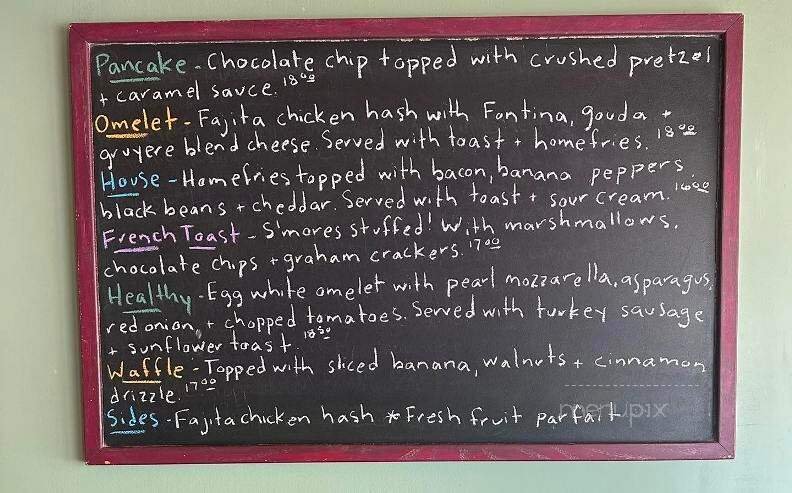 Pancake - Chocolate chip topped with crushed pretzel
+ caramel sauce. 18⁰⁰
Omelet - Fajita chicken hash with Fontina, gouda +
gruyere blend cheese. Served with toast + homefries. 18⁰⁰
House - Homefries topped with bacon, banana peppers,
black beans + cheddar. Served with toast + sour cream. 16⁰⁰
French Toast - S'mores stuffed! With marshmallows,
chocolate chips + graham crackers. 17⁰⁰
Healthy - Egg white omelet with pearl mozzarella, asparagus,
red onion, + chopped tomatoes. Served with turkey sausage
+ sunflower toast. 18⁵⁰
Waffle - Topped with sliced banana, walnuts + cinnamon
drizzle. 17⁰⁰
Sides - Fajita chicken hash * Fresh fruit parfait
menupix